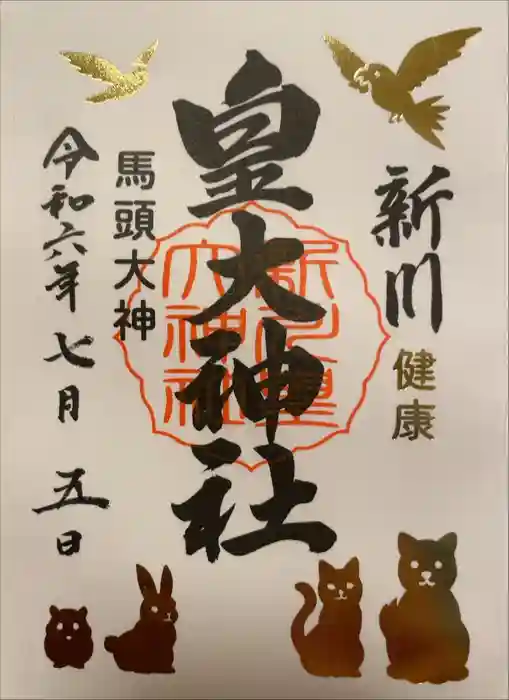 新川
健康
皇大神社
新川皇
大神社
馬頭大神
令和六年七月 五日